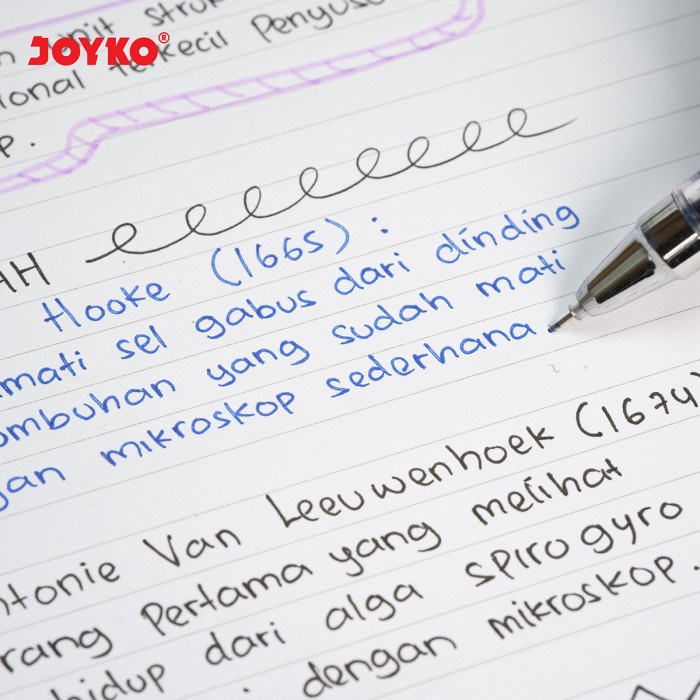 JOYKO®
unit struk
ional terkecil Penyusu
P.
AH
Hooke (1665) :
mati sel gabus dari dinding
ombuhan yang sudah mati
gan mikroskop sederhana.
ntonie Van Leeuwenhoek (1674)
rang Pertama yang melihat
hidup dari alga spirogyro
dengan mikroskop.